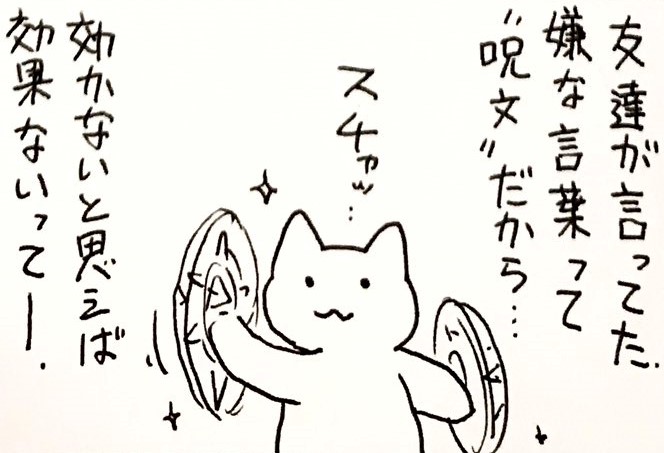 友達が言ってた.
嫌な言葉って
"呪文"だから…
スチャッ…
効かないと思えば
効果ないってー.